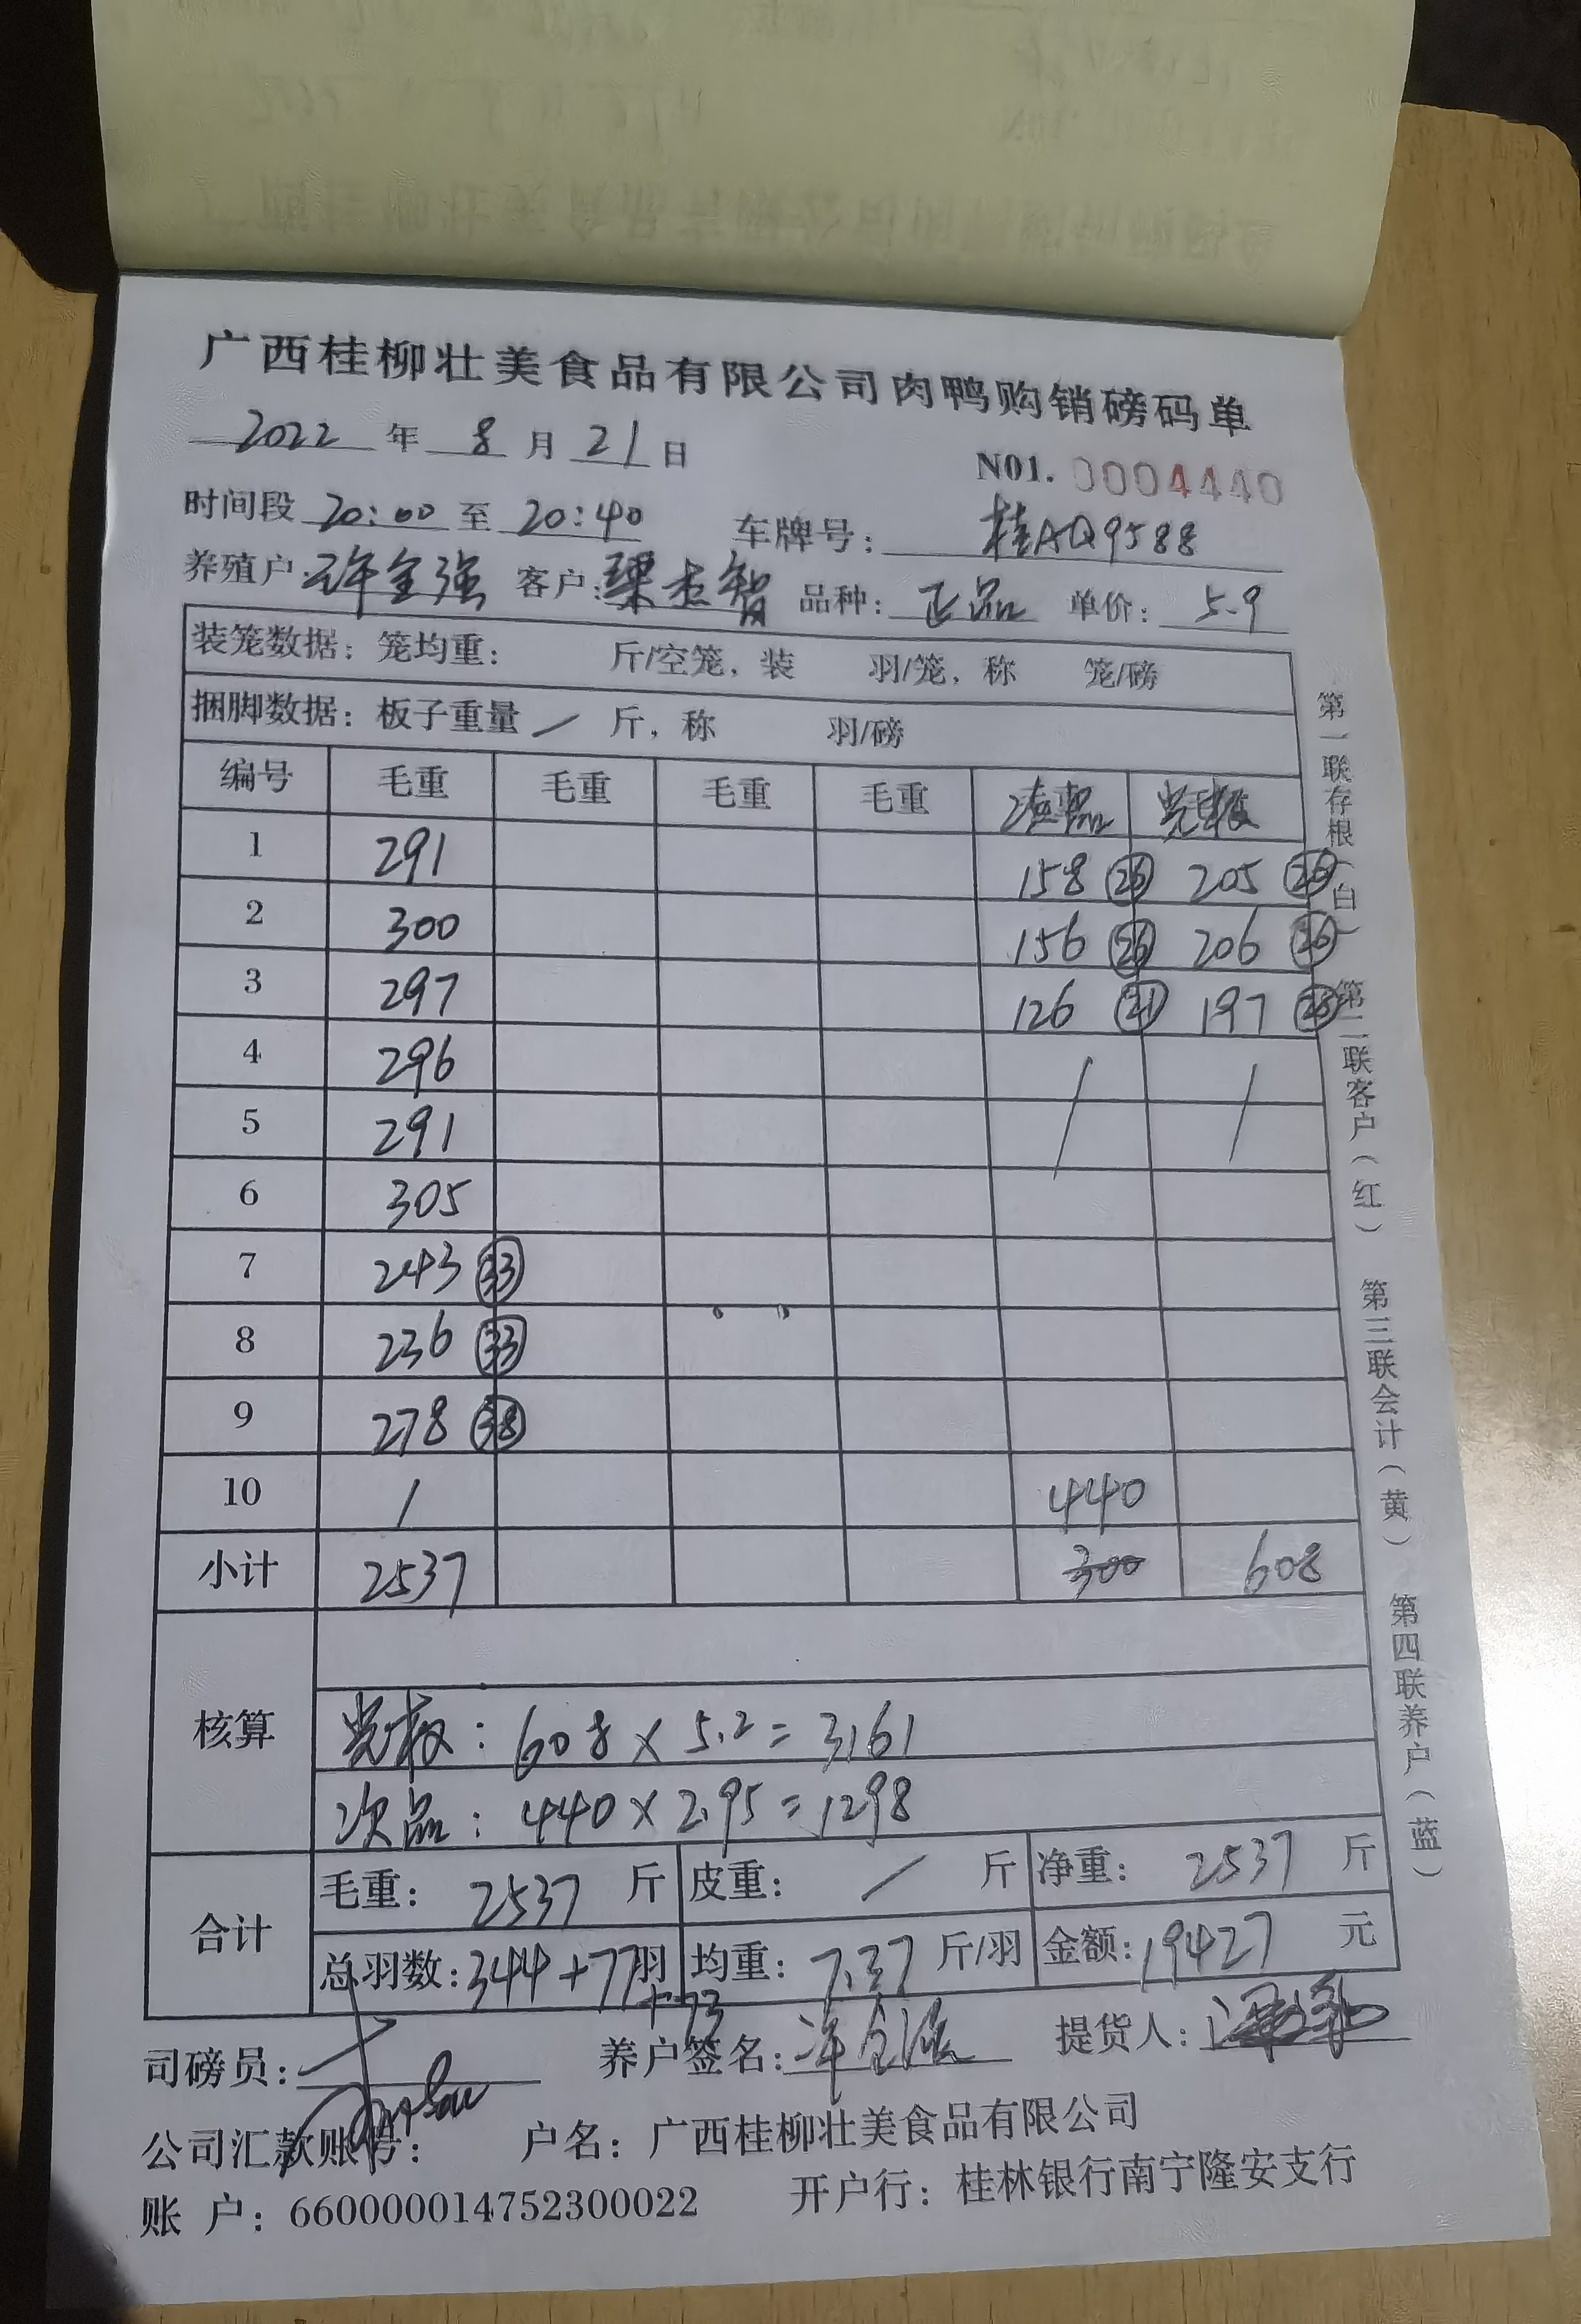 广西桂柳壮美食品有限公司肉鸭购销磅码单
2022 年 8 月 21 日
N01. 0004440
时间段 20:00 至 20:40 车牌号: 桂AQ9588
养殖户: 许全强 客户: 梁杰智 品种: 正品 单价: 5.9
装笼数据: 笼均重: 斤/空笼, 装 羽/笼, 称 笼/磅
捆脚数据: 板子重量 / 斤, 称 羽/磅
编号 毛重 毛重 毛重 毛重 次品
1 291 158 26 205 26
2 300 156 26 206 26
3 297 126 21 197 25
4 296 / /
5 291
6 305
7 243 33
8 236 33
9 278 38
10 / 440
小计 2537 300 608
核算
光板: 608 × 5.2 = 3161
次品: 440 × 2.95 = 1298
合计
毛重: 2537 斤 皮重: / 斤 净重: 2537 斤
总羽数: 344+77羽 均重: 7.37 斤/羽 金额: 19427 元
+73
司磅员: 养户签名: 许全强 提货人:
公司汇款账号: 户名: 广西桂柳壮美食品有限公司
账 户: 660000014752300022 开户行: 桂林银行南宁隆安支行
第一联存根(白)
第二联客户(红)
第三联会计(黄)
第四联养户(蓝)